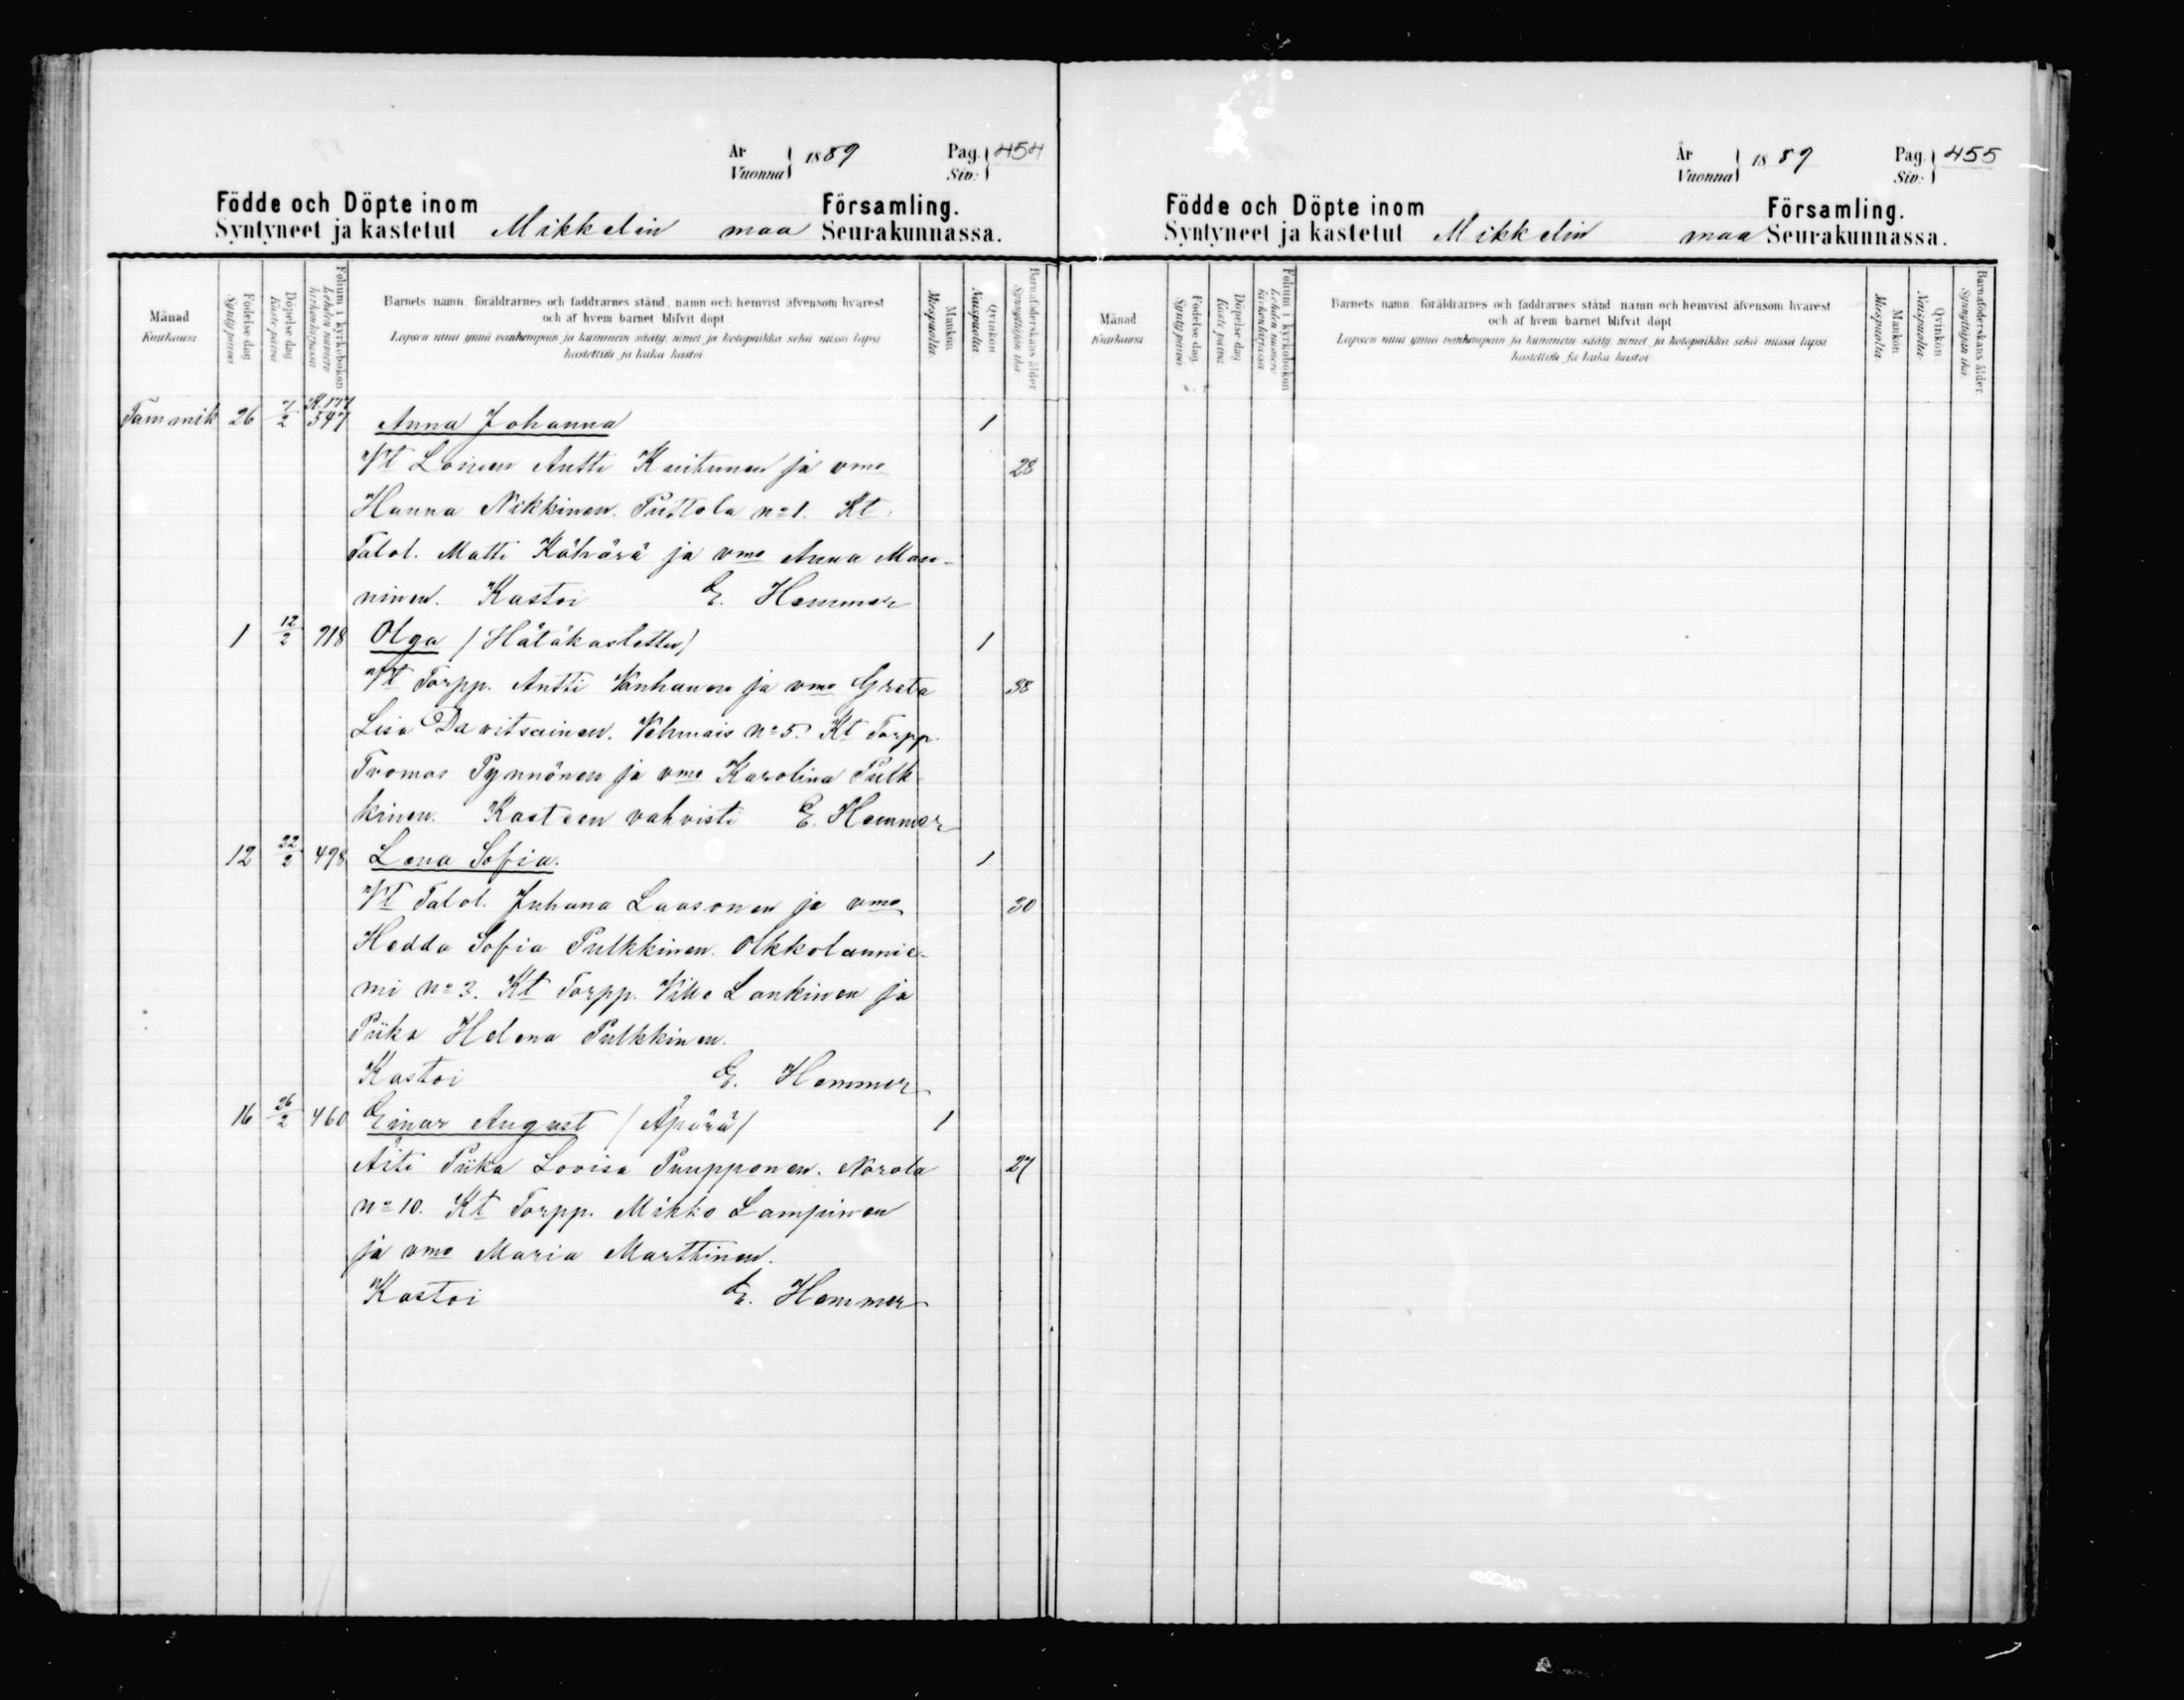 År Vuonna 1889 Pag. Siv: 454
Födde och Döpte inom Församling.
Syntyneet ja kastetut Mikkelin maa Seurakunnassa.
Månad Kuukausi
Födelse dag Synty päivä
Döpelse dag Kaste päivä
Folium i kyrkoboken Lehden numero kirkonkirjassa
Barnets namn, föräldrarnes och faddrarnes stånd, namn och hemvist äfvensom hvarest
och af hvem barnet blifvit döpt
Lapsen nimi ynnä vanhempain ja kummein sääty, nimet ja kotopaikka sekä missä lapsi
kastettiin ja kuka kastoi
Mankön Miespuolia
Qvinkön Naispuolia
Barnaföderskans ålder Synnyttäjän ikä
Tammik 26 7/2 547 Anna Johanna 1
Vt Loinen Antti Kuitunen ja vmo 28
Hanna Nikkinen. Puttola no 1. Kt.
Talol. Matti Kähärä ja vmo Anna Man-
ninen. Kastoi E. Hemmer
1 12/2 718 Olga (Hätäkastettu) 1
Vt Torpp. Antti Vanhanen ja vmo Greta 38
Lisa Davitsainen. Vehmais no 5. Kt Torpp.
Tvomas Pynnönen ja vmo Karolina Pulk-
kinen. Kasteen vahvisti E. Hemmer
12 22/2 498 Lena Sofia. 1
Vt Talol. Juhana Laasonen ja vmo 30
Hedda Sofia Pulkkinen. Olkkolannie-
mi no 3. Kt Torpp. Ville Lankinen ja
Piika Helena Pulkkinen.
Kastoi E. Hemmer
16 26/2 460 Einar August (Äpärä) 1
Äiti Piika Lovisa Puupponen. Norola 27
no 10. Kt Torpp. Mikko Lampinen
ja vmo Maria Marttinen.
Kastoi E. Hemmer
År Vuonna 1889 Pag. Siv: 455
Födde och Döpte inom Församling.
Syntyneet ja kastetut Mikkelin maa Seurakunnassa.
Månad Kuukausi
Födelse dag Synty päivä
Döpelse dag Kaste päivä
Folium i kyrkoboken Lehden numero kirkonkirjassa
Barnets namn, föräldrarnes och faddrarnes stånd, namn och hemvist äfvensom hvarest
och af hvem barnet blifvit döpt
Lapsen nimi ynnä vanhempain ja kummein sääty, nimet ja kotopaikka sekä missä lapsi
kastettiin ja kuka kastoi.
Mankön Miespuolia
Qvinkön Naispuolia
Barnaföderskans ålder Synnyttäjän ikä